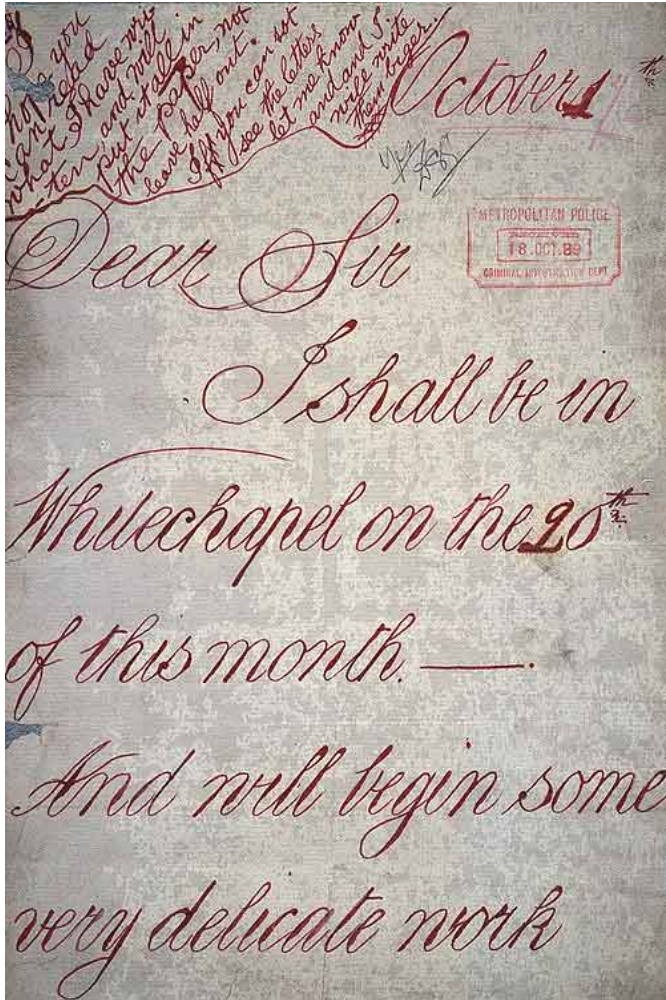 I hope you
can read
what I have writ
ten, and will
put it all in
the paper, not
leave half out.
If you can not
see the letters
let me know
and and I
will write
them biger.
October 1
th
Dear Sir
METROPOLITAN POLICE
18.OCT.89
CRIMINAL INVESTIGATION DEPT
I shall be in
Whitechapel on the 20th
of this month. —
And will begin some
very delicate work